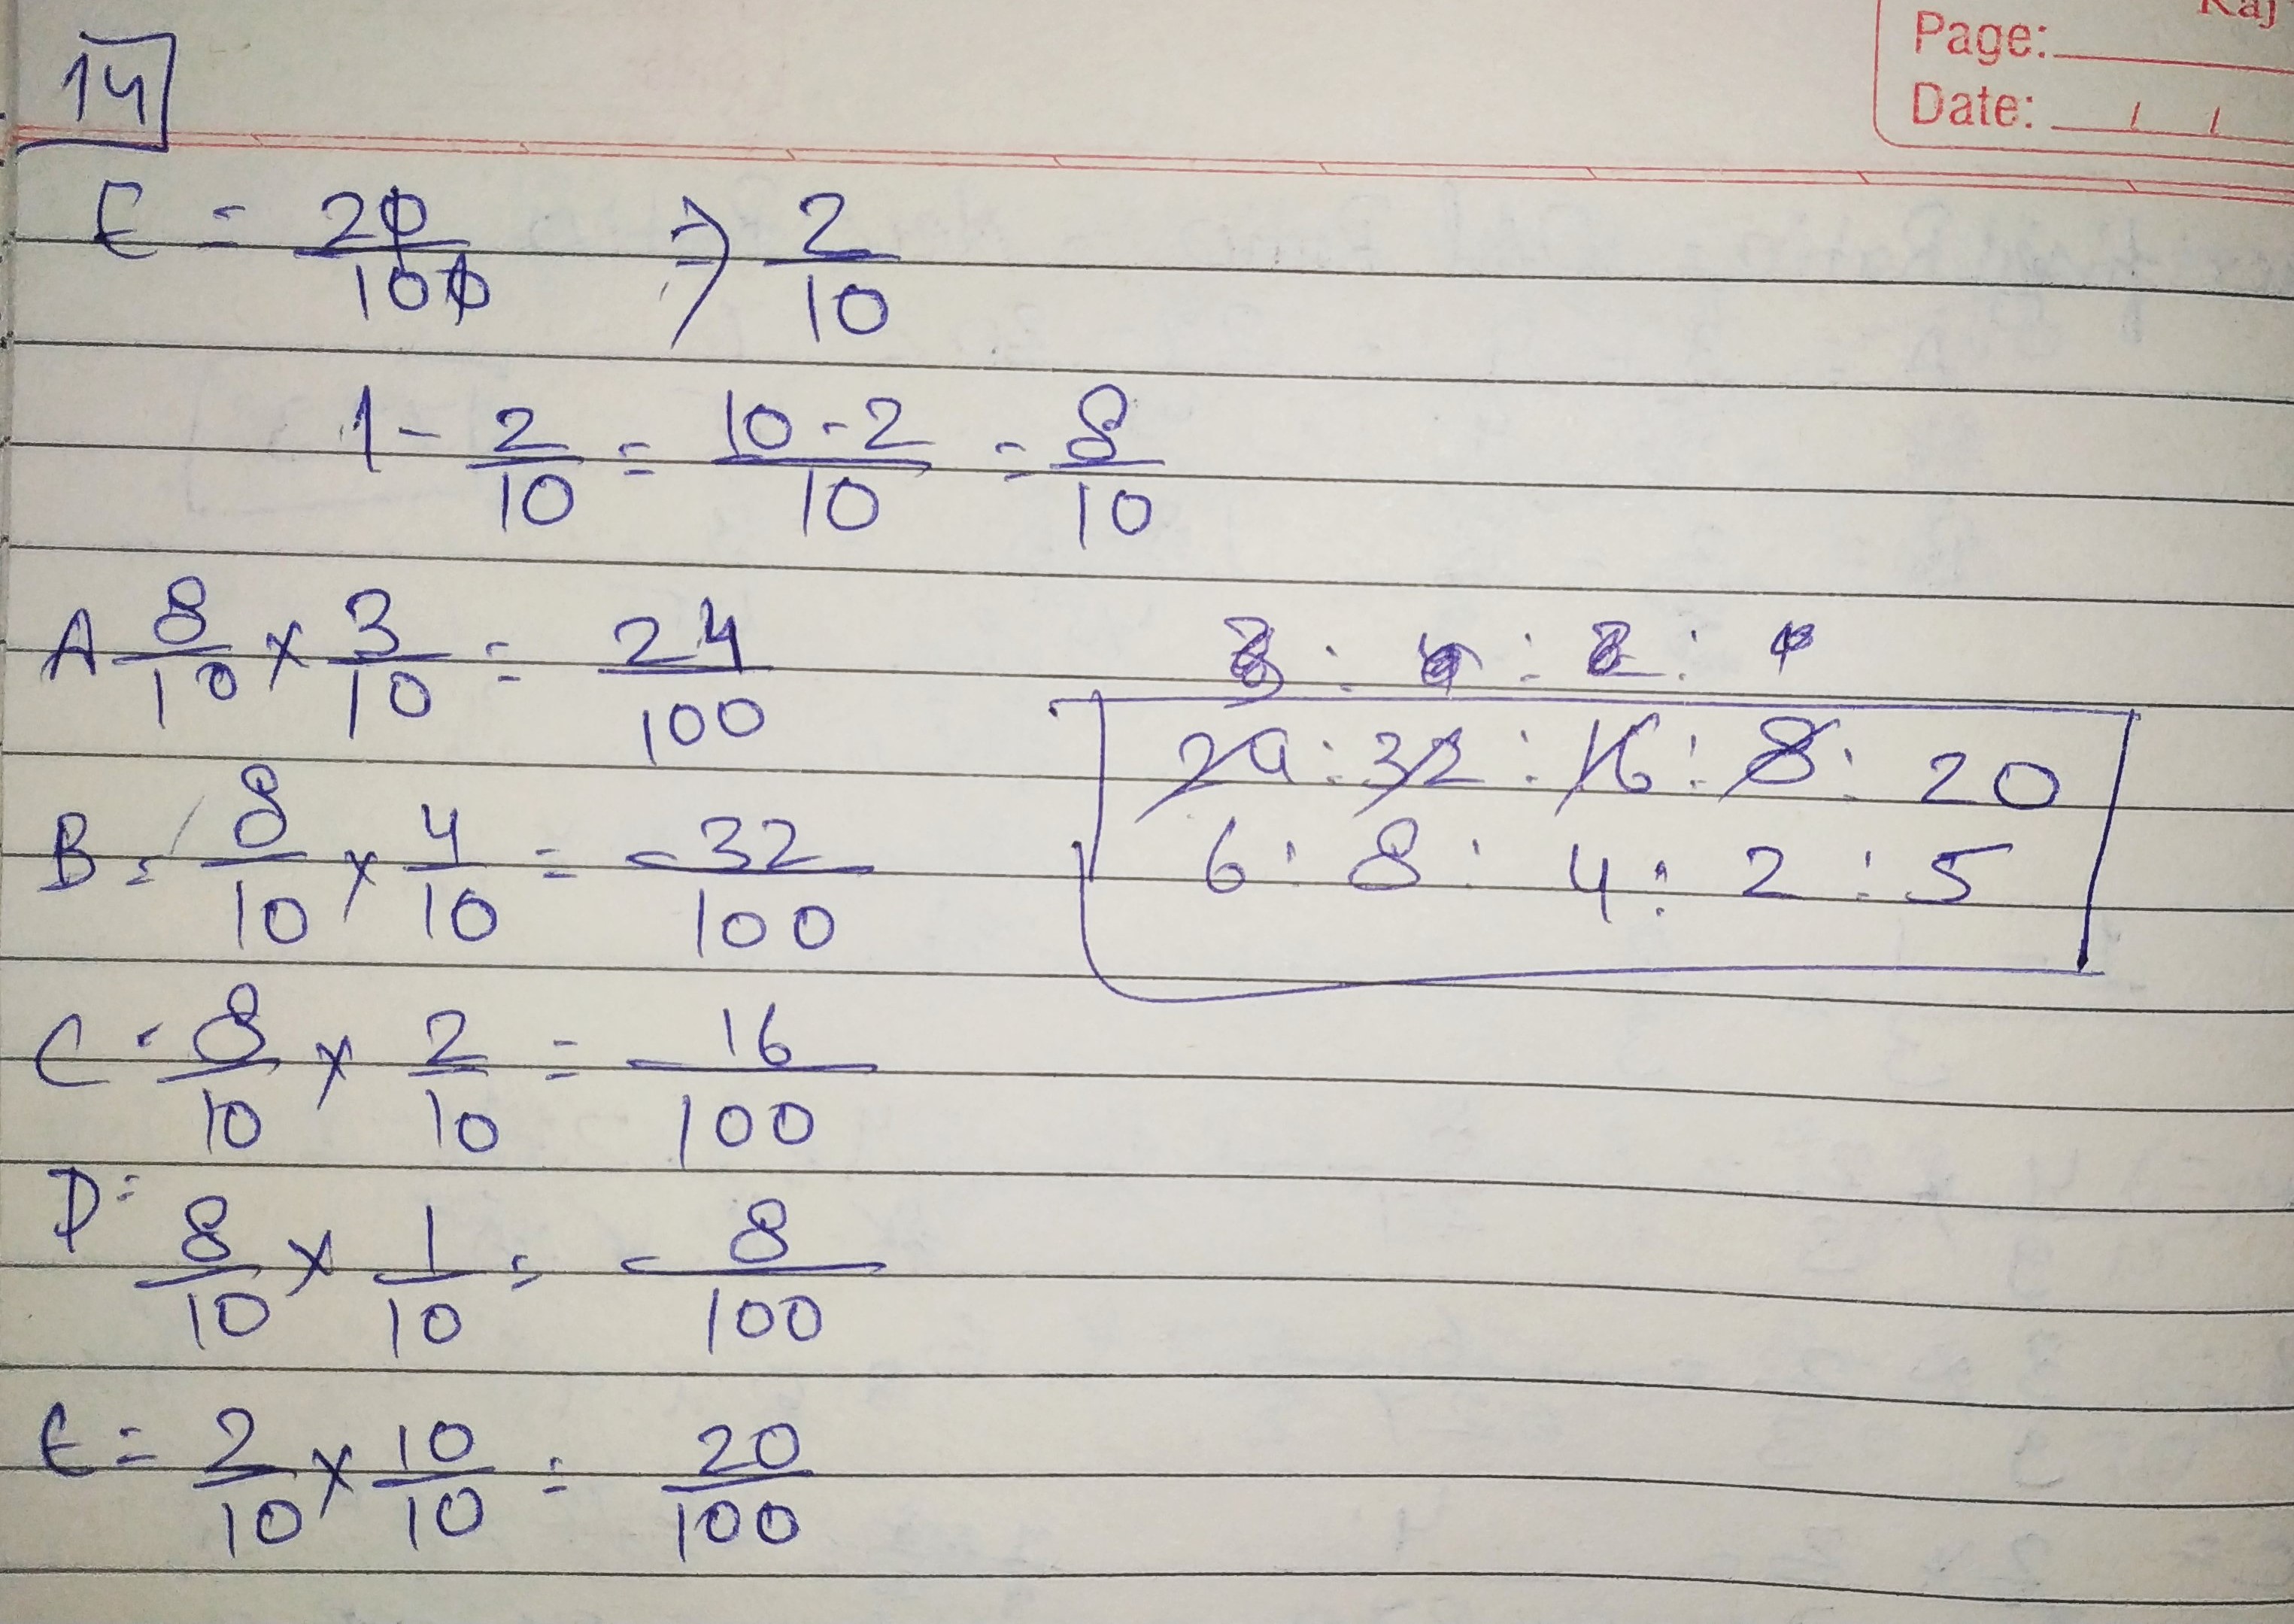 Raj
Page:
Date: / /
14
E = 20/100 ⇒ 2/10
1 - 2/10 = 10-2/10 = 8/10
A 8/10 × 3/10 = 24/100
B = 8/10 × 4/10 = 32/100
C = 8/10 × 2/10 = 16/100
D = 8/10 × 1/10 = 8/100
E = 2/10 × 10/10 = 20/100
24 : 32 : 16 : 8 : 20
6 : 8 : 4 : 2 : 5